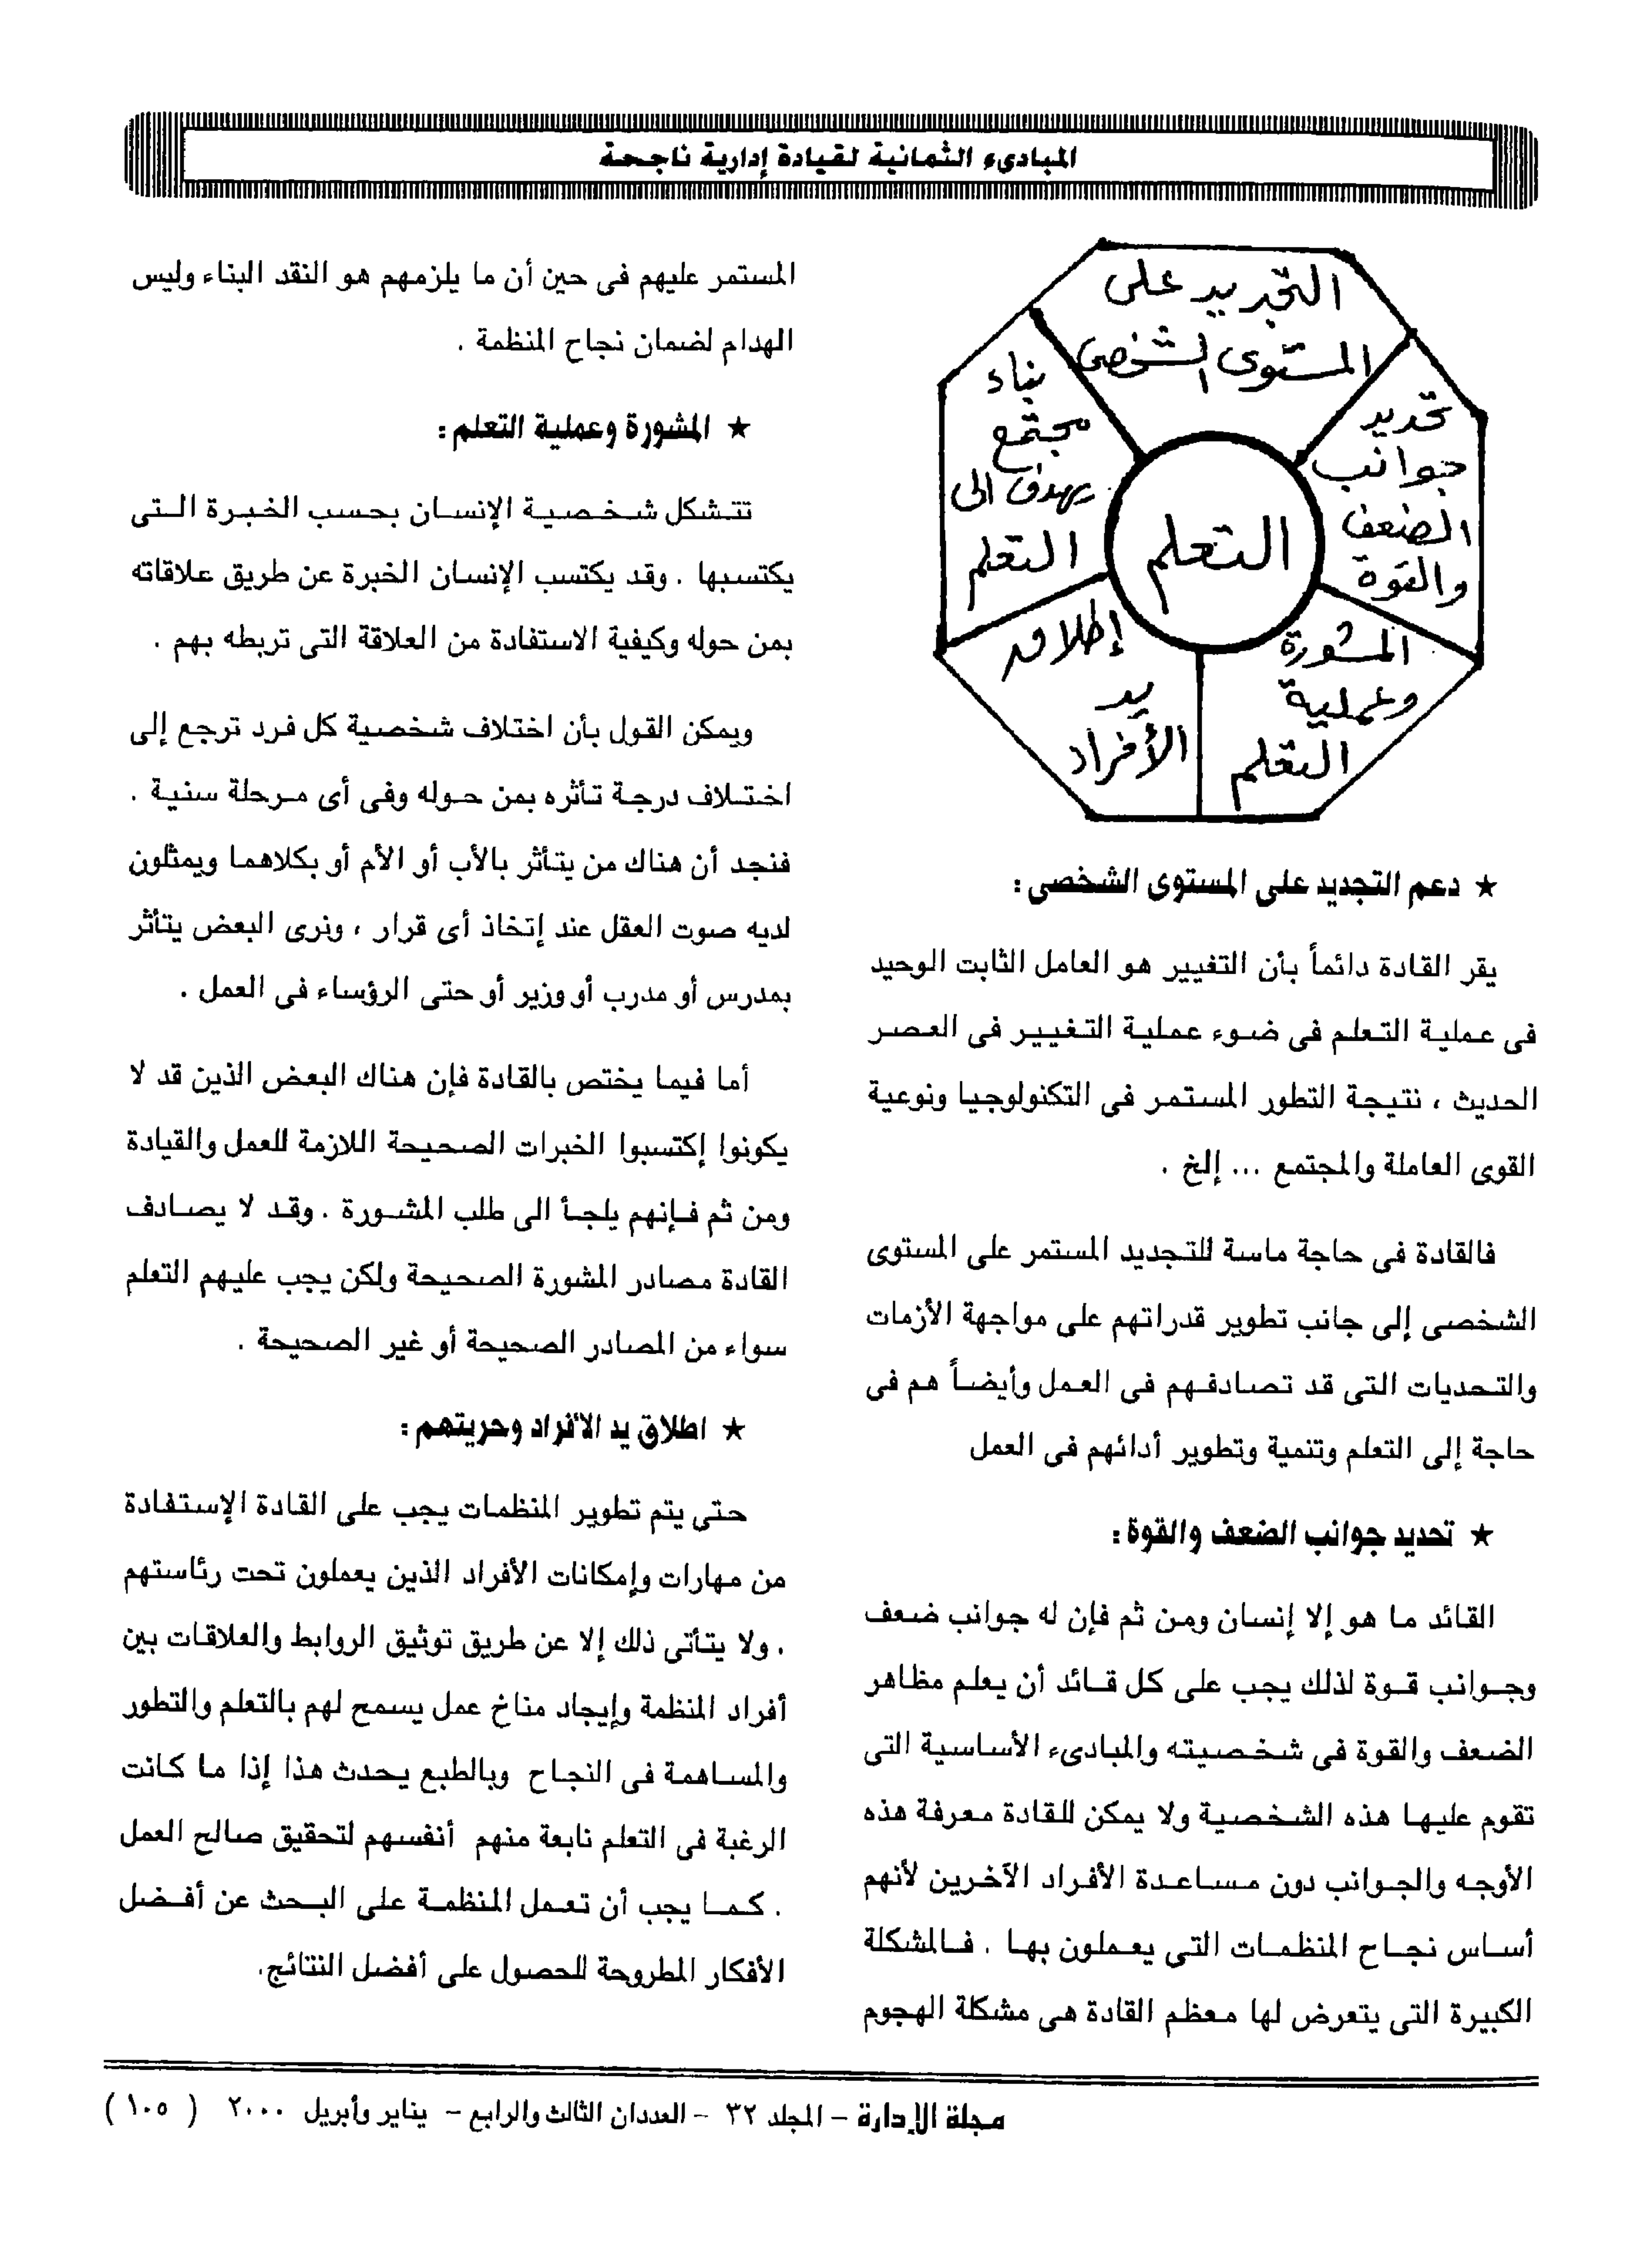 المبادىء الثمانية لقيادة إدارية ناجحة
التجديد على
المستوى الشخصى
تحديد
جوانب
الضعف
والقوة
المشورة
وعملية
التعلم
إطلاق
يد
الأفراد
بناء
مجتمع
يهدف الى
التعلم
التعلم
★ دعم التجديد على المستوى الشخصى :
يقر القادة دائماً بأن التغيير هو العامل الثابت الوحيد
فى عملية التعلم فى ضوء عملية التغيير فى العصر
الحديث ، نتيجة التطور المستمر فى التكنولوجيا ونوعية
القوى العاملة والمجتمع ... إلخ .
فالقادة فى حاجة ماسة للتجديد المستمر على المستوى
الشخصى إلى جانب تطوير قدراتهم على مواجهة الأزمات
والتحديات التى قد تصادفهم فى العمل وأيضاً هم فى
حاجة إلى التعلم وتنمية وتطوير أدائهم فى العمل
★ تحديد جوانب الضعف والقوة :
القائد ما هو إلا إنسان ومن ثم فإن له جوانب ضعف
وجوانب قوة لذلك يجب على كل قائد أن يعلم مظاهر
الضعف والقوة فى شخصيته والمبادىء الأساسية التى
تقوم عليها هذه الشخصية ولا يمكن للقادة معرفة هذه
الأوجه والجوانب دون مساعدة الأفراد الآخرين لأنهم
أساس نجاح المنظمات التى يعملون بها . فالمشكلة
الكبيرة التى يتعرض لها معظم القادة هى مشكلة الهجوم
المستمر عليهم فى حين أن ما يلزمهم هو النقد البناء وليس
الهدام لضمان نجاح المنظمة .
★ المشورة وعملية التعلم :
تتشكل شخصية الإنسان بحسب الخبرة التى
يكتسبها . وقد يكتسب الإنسان الخبرة عن طريق علاقاته
بمن حوله وكيفية الاستفادة من العلاقة التى تربطه بهم .
ويمكن القول بأن اختلاف شخصية كل فرد ترجع إلى
اختلاف درجة تأثره بمن حوله وفى أى مرحلة سنية .
فنجد أن هناك من يتأثر بالأب أو الأم أو بكلاهما ويمثلون
لديه صوت العقل عند إتخاذ أى قرار ، ونرى البعض يتأثر
بمدرس أو مدرب أو وزير أو حتى الرؤساء فى العمل .
أما فيما يختص بالقادة فإن هناك البعض الذين قد لا
يكونوا إكتسبوا الخبرات الصحيحة اللازمة للعمل والقيادة
ومن ثم فإنهم يلجأ الى طلب المشورة . وقد لا يصادف
القادة مصادر المشورة الصحيحة ولكن يجب عليهم التعلم
سواء من المصادر الصحيحة أو غير الصحيحة .
★ اطلاق يد الأفراد وحريتهم :
حتى يتم تطوير المنظمات يجب على القادة الإستفادة
من مهارات وإمكانات الأفراد الذين يعملون تحت رئاستهم
. ولا يتأتى ذلك إلا عن طريق توثيق الروابط والعلاقات بين
أفراد المنظمة وإيجاد مناخ عمل يسمح لهم بالتعلم والتطور
والمساهمة فى النجاح وبالطبع يحدث هذا إذا ما كانت
الرغبة فى التعلم نابعة منهم أنفسهم لتحقيق صالح العمل
. كما يجب أن تعمل المنظمة على البحث عن أفضل
الأفكار المطروحة للحصول على أفضل النتائج.
مجلة الإدارة - المجلد ٣٢ - العددان الثالث والرابع - يناير وأبريل ٢٠٠٠ ( ١٠٥ )